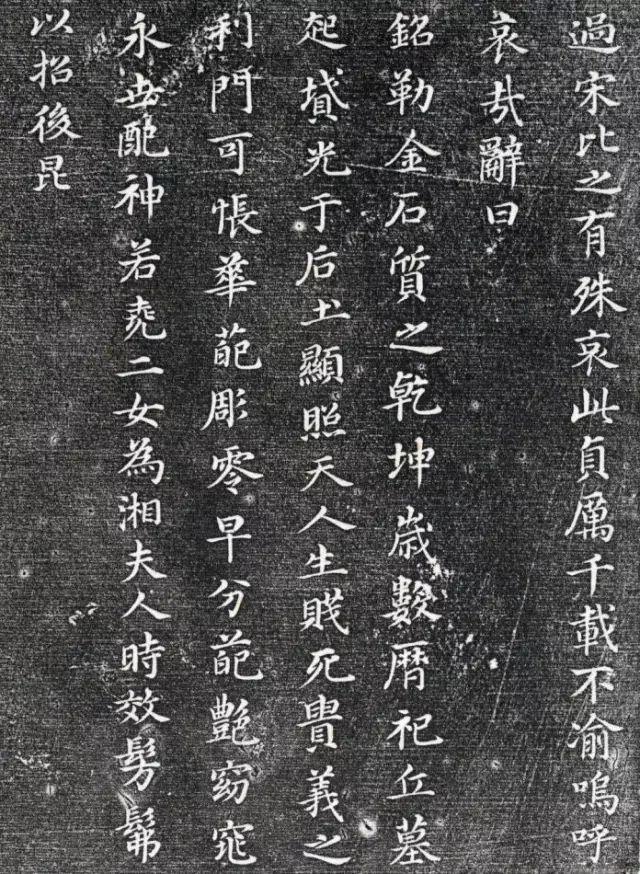 過宋比之有殊哀此貞厲千載不渝嗚呼
哀哉辭曰
銘勒金石質之乾坤歲數曆祀丘墓
起墳光于后土顯照天人生賤死貴義之
利門何悵華葩彫零早分葩艷窈窕
永世配神若堯二女為湘夫人時效髣髴
以招後昆